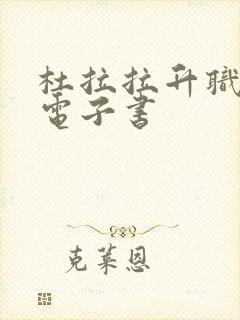 杜拉拉升職
電子書
克萊恩